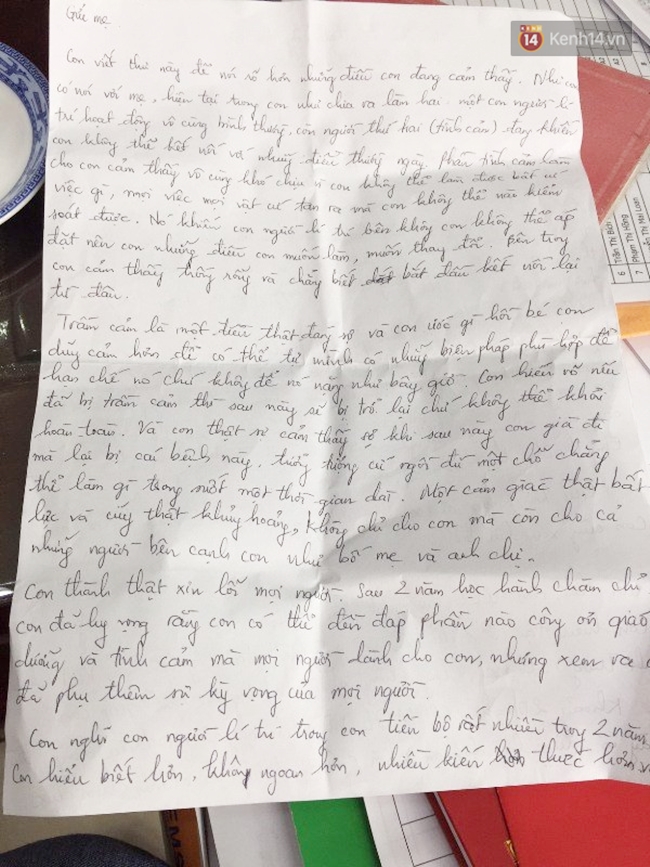 KENH 14 Kenh14.vn
Gửi mẹ
Con viết thư này để nói rõ hơn những điều con đang cảm thấy. Như con
có nói với mẹ, hiện tại trong con như chia ra làm hai: một con người lí
trí hoạt động vô cùng bình thường, còn người thứ hai (tình cảm) đang khiến
con không thể kết nối với những điều thường ngày. Phần tình cảm làm
cho con cảm thấy vô cùng khó chịu vì con không thể làm được bất cứ
việc gì, mọi việc mọi vật cứ tan ra mà con không thể nào kiểm
soát được. Nó khiến con người lí trí bên trong con không thể áp
đặt nên con những điều con muốn làm, muốn thay đổi. Bên trong
con cảm thấy trống rỗng và chẳng biết bắt đầu kết nối lại
từ đâu.
Trầm cảm là một điều thật đáng sợ và con ước gì hồi bé con
dũng cảm hơn để có thể tự mình có những biện pháp phù hợp để
hạn chế nó chứ không để nó nặng như bây giờ. Con hiểu rõ nếu
đã bị trầm cảm thì sau này sẽ bị trở lại chứ không thể khỏi
hoàn toàn. Và con thật sự cảm thấy sợ khi sau này con già đi
mà lại bị cái bệnh này, tưởng tượng cứ ngồi đú một chỗ chẳng
thể làm gì trong suốt một thời gian dài. Một cảm giác thật bất
lực và cũng thật khủng hoảng, không chỉ cho con mà còn cho cả
những người bên cạnh con như bố mẹ và anh chị.
Con thành thật xin lỗi mọi người. Sau 2 năm học hành chăm chỉ
con đã hy vọng rằng con có thể đền đáp phần nào công ơn giáo
dưỡng và tình cảm mà mọi người dành cho con, nhưng xem ra
đã phụ thêm sự kỳ vọng của mọi người.
Con nghĩ con người lí trí trong con tiến bộ rất nhiều trong 2 năm
Con hiểu biết hơn, khôn ngoan hơn, nhiều kiến thức hơn
6 Trần Thị Bích
7 Phạm Thị Hồng
Mai Loan